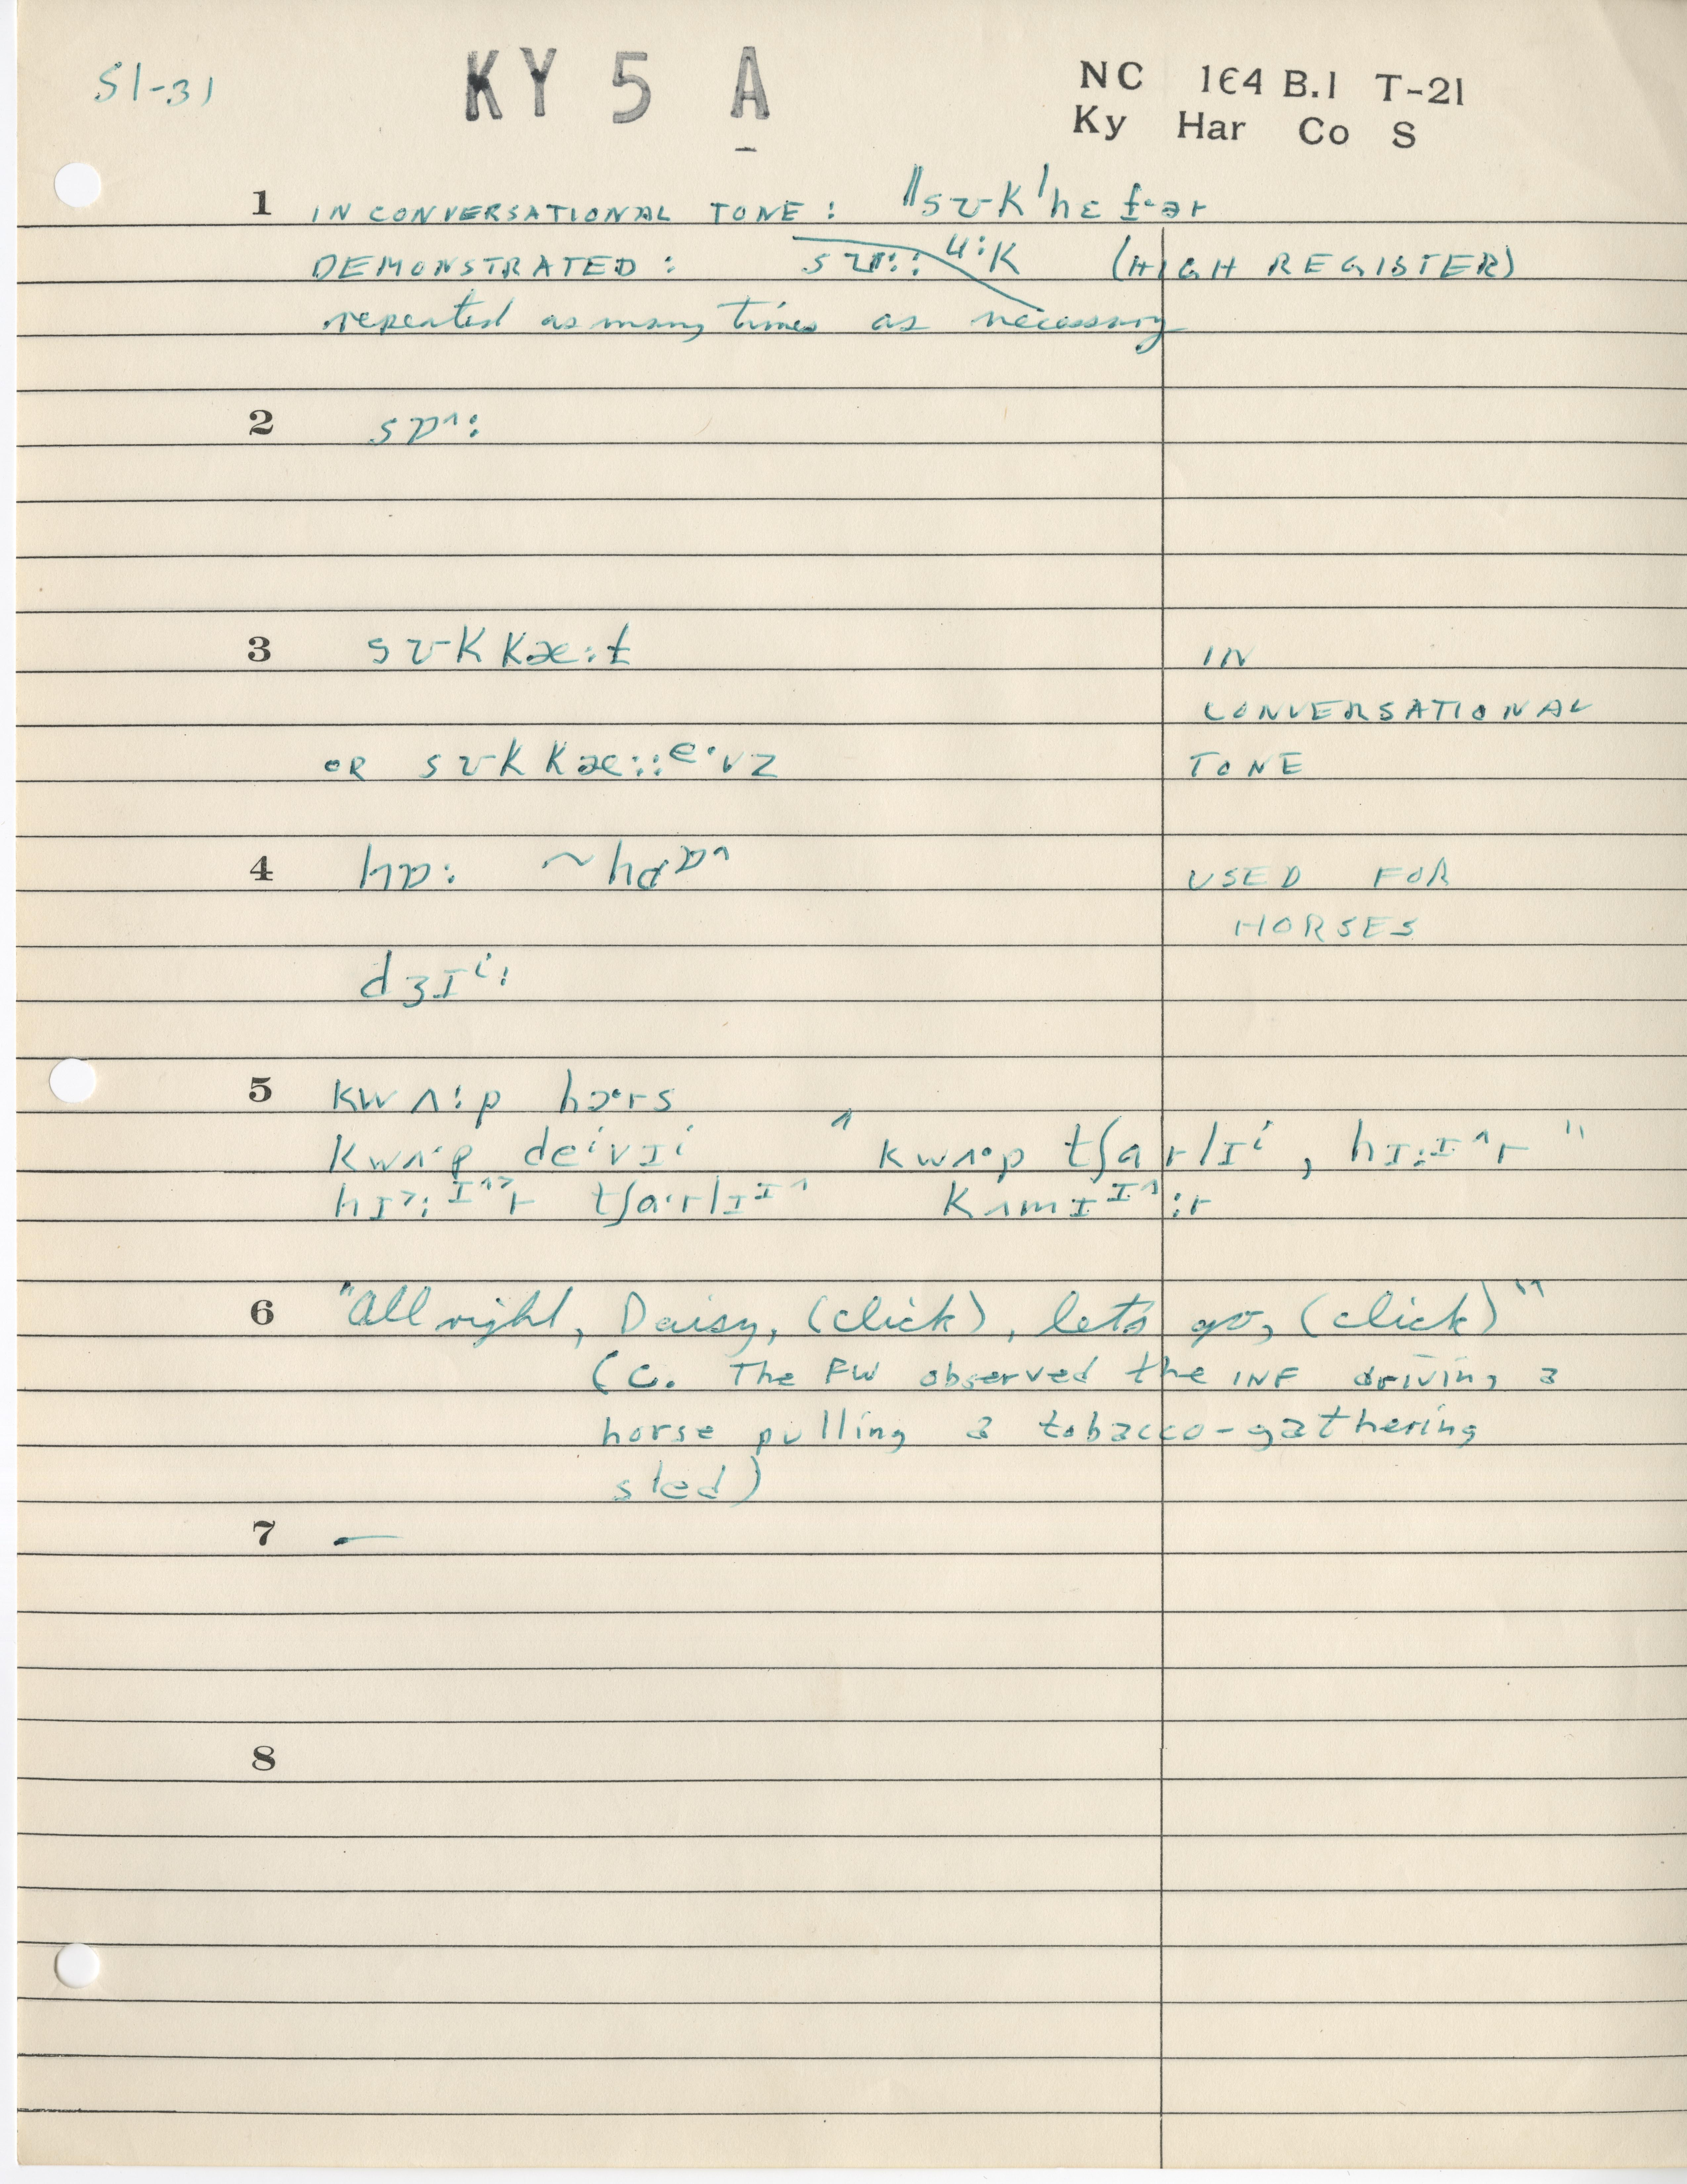 51-31
KY 5 A
NC 1E4 B.1 T-21
Ky Har Co S
1 IN CONVERSATIONAL TONE: ˈˈsʊk ˈhɛɫfˑər
DEMONSTRATED: sʊːː ᵘːk (HIGH REGISTER)
repeated as many times as necessary
2 sɒ^ː
3 sʊk kæːɫ IN
CONVERSATIONAL
OR sʊk kæːːᵉˑvz TONE
4 hɒː ~hɑᵒ^ USED FOR
HORSES
dʒɪⁱː
5 kwʌːp hɔˑrs
kwʌˑp deⁱvɪⁱ " kwʌˑp tʃɑrlɪⁱ, hɪːɪ^r "
hɪ>ːɪ^>r tʃɑˑrlɪᴵ^ kʌmɪᴵ^ːr
6 "All right, Daisy, (click), let's go, (click)"
(c. The FW observed the INF driving a
horse pulling a tobacco-gathering
sled)
7 —
8